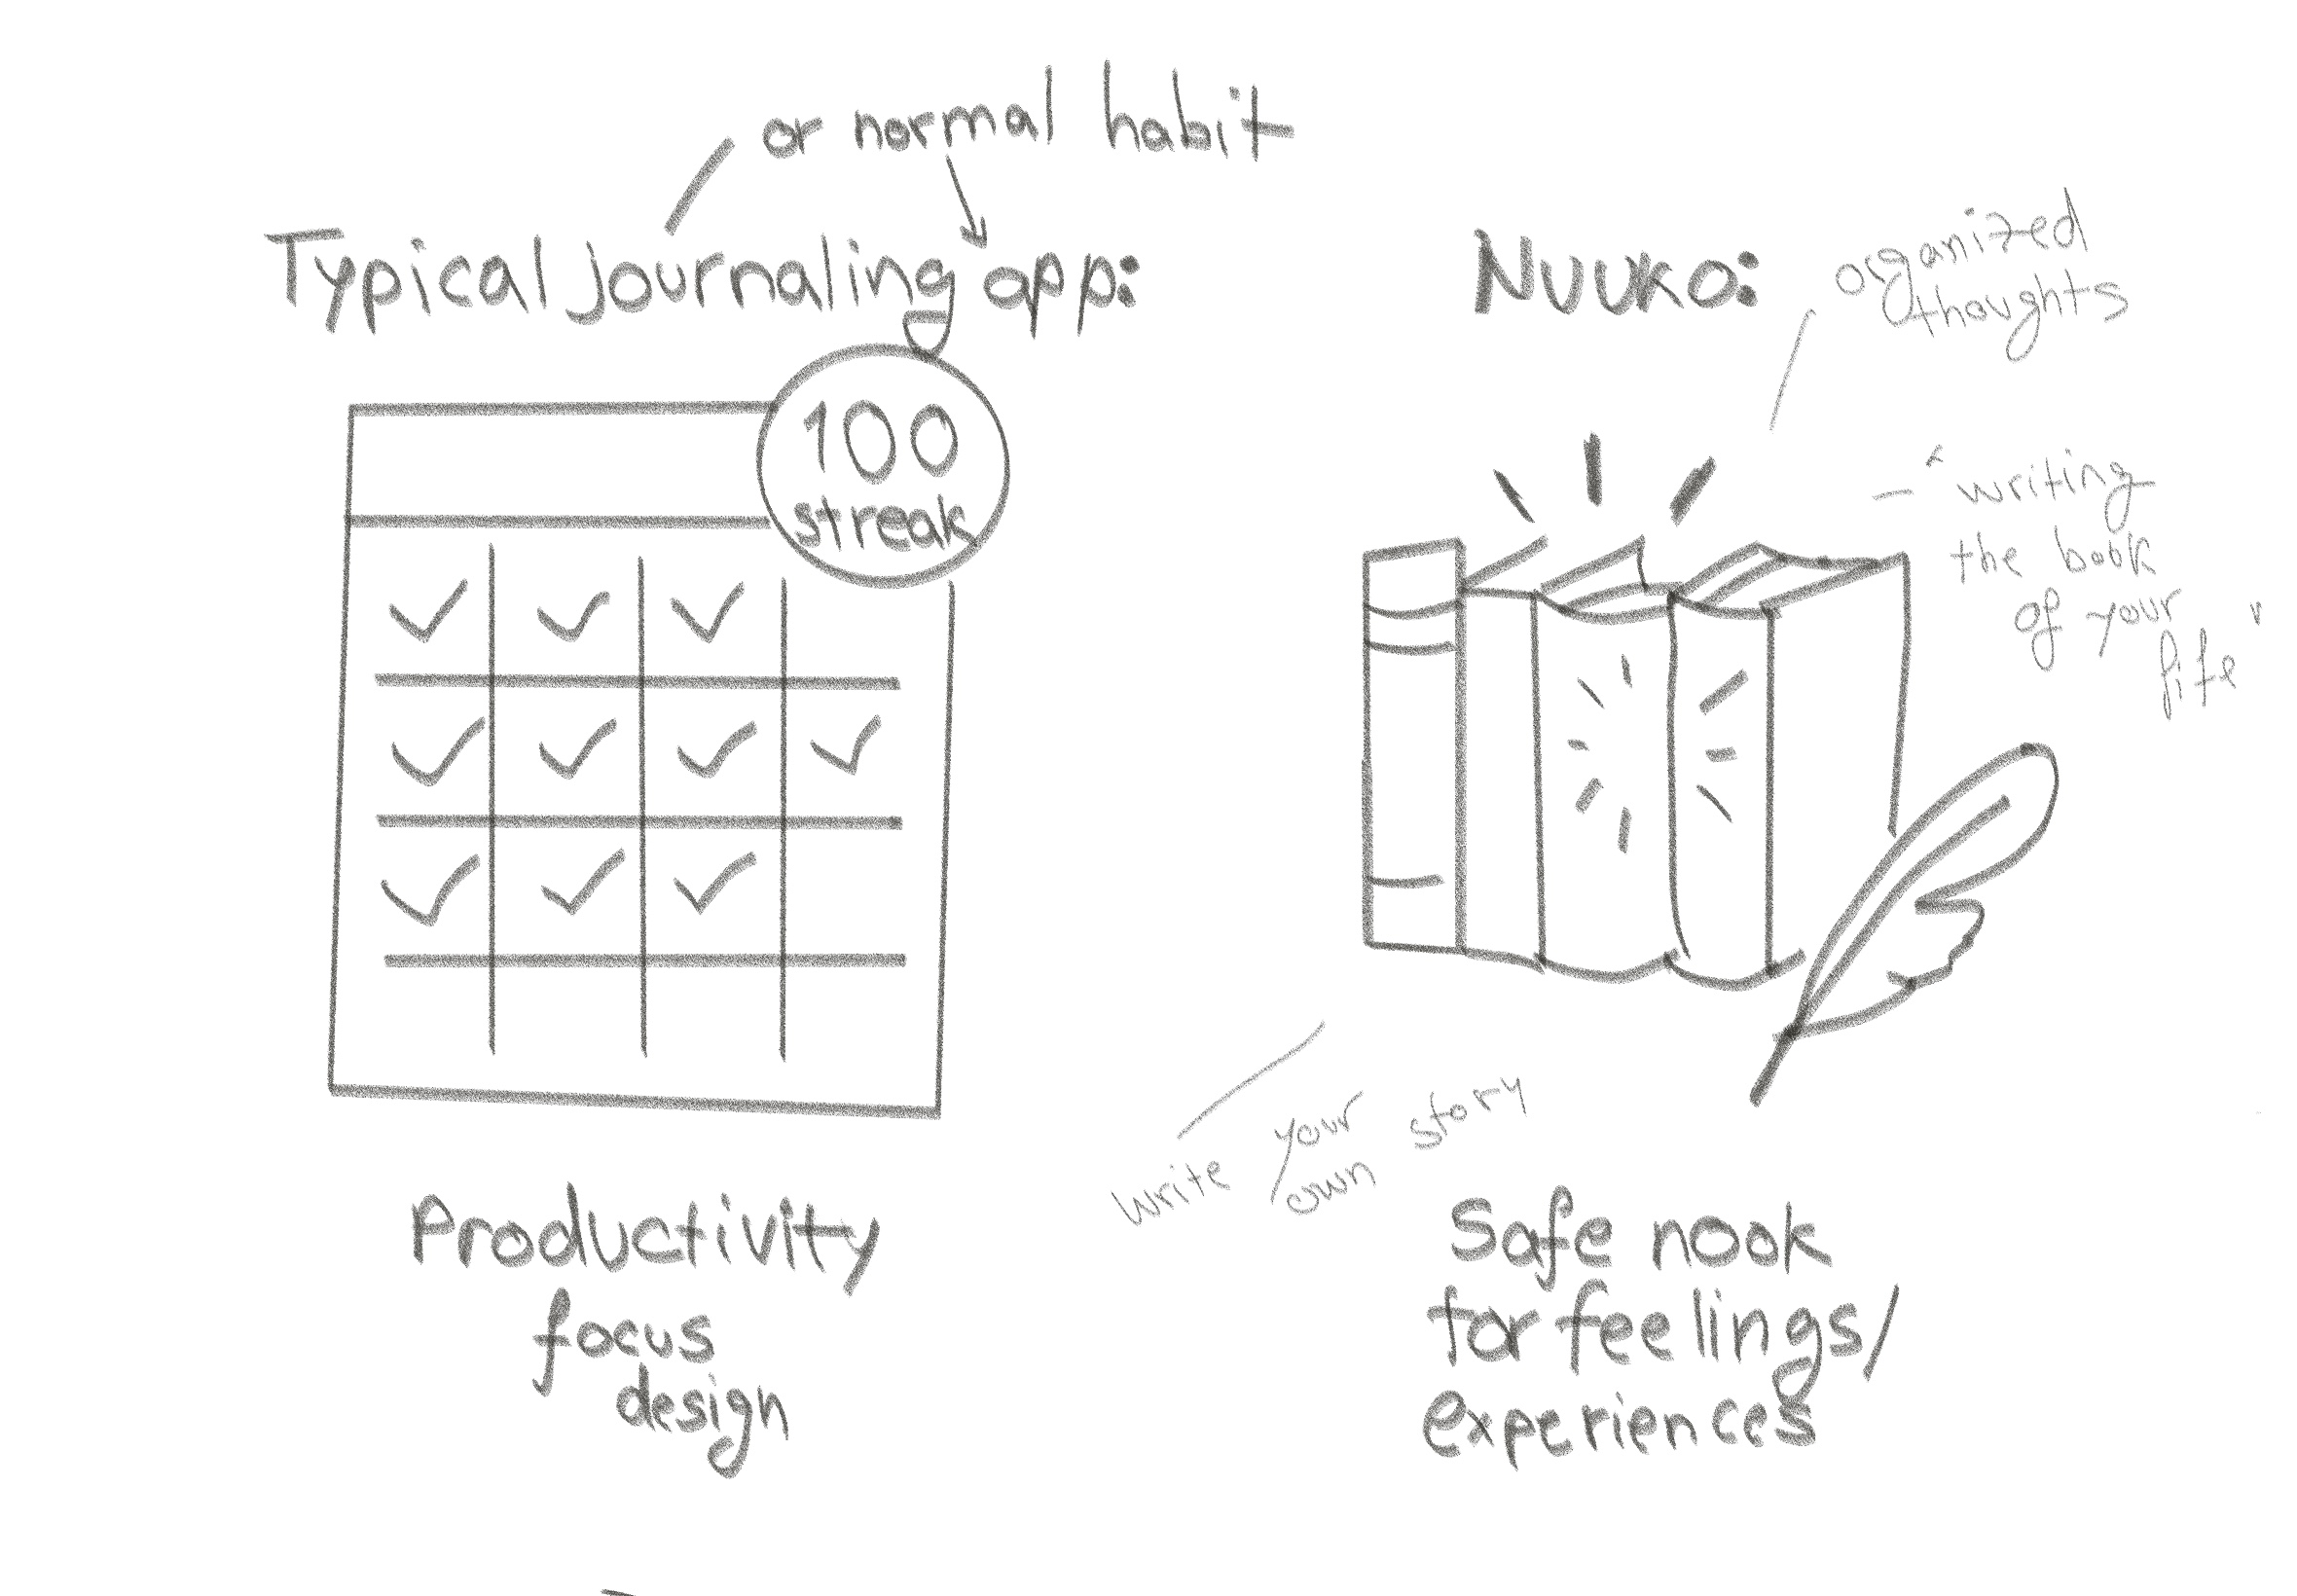 or normal habit
Typical journaling app:
100
streak
Productivity
focus
design
Nuuko:
organized
thoughts
"writing
the book
of your
life"
write your
own story
Safe nook
for feelings/
experiences